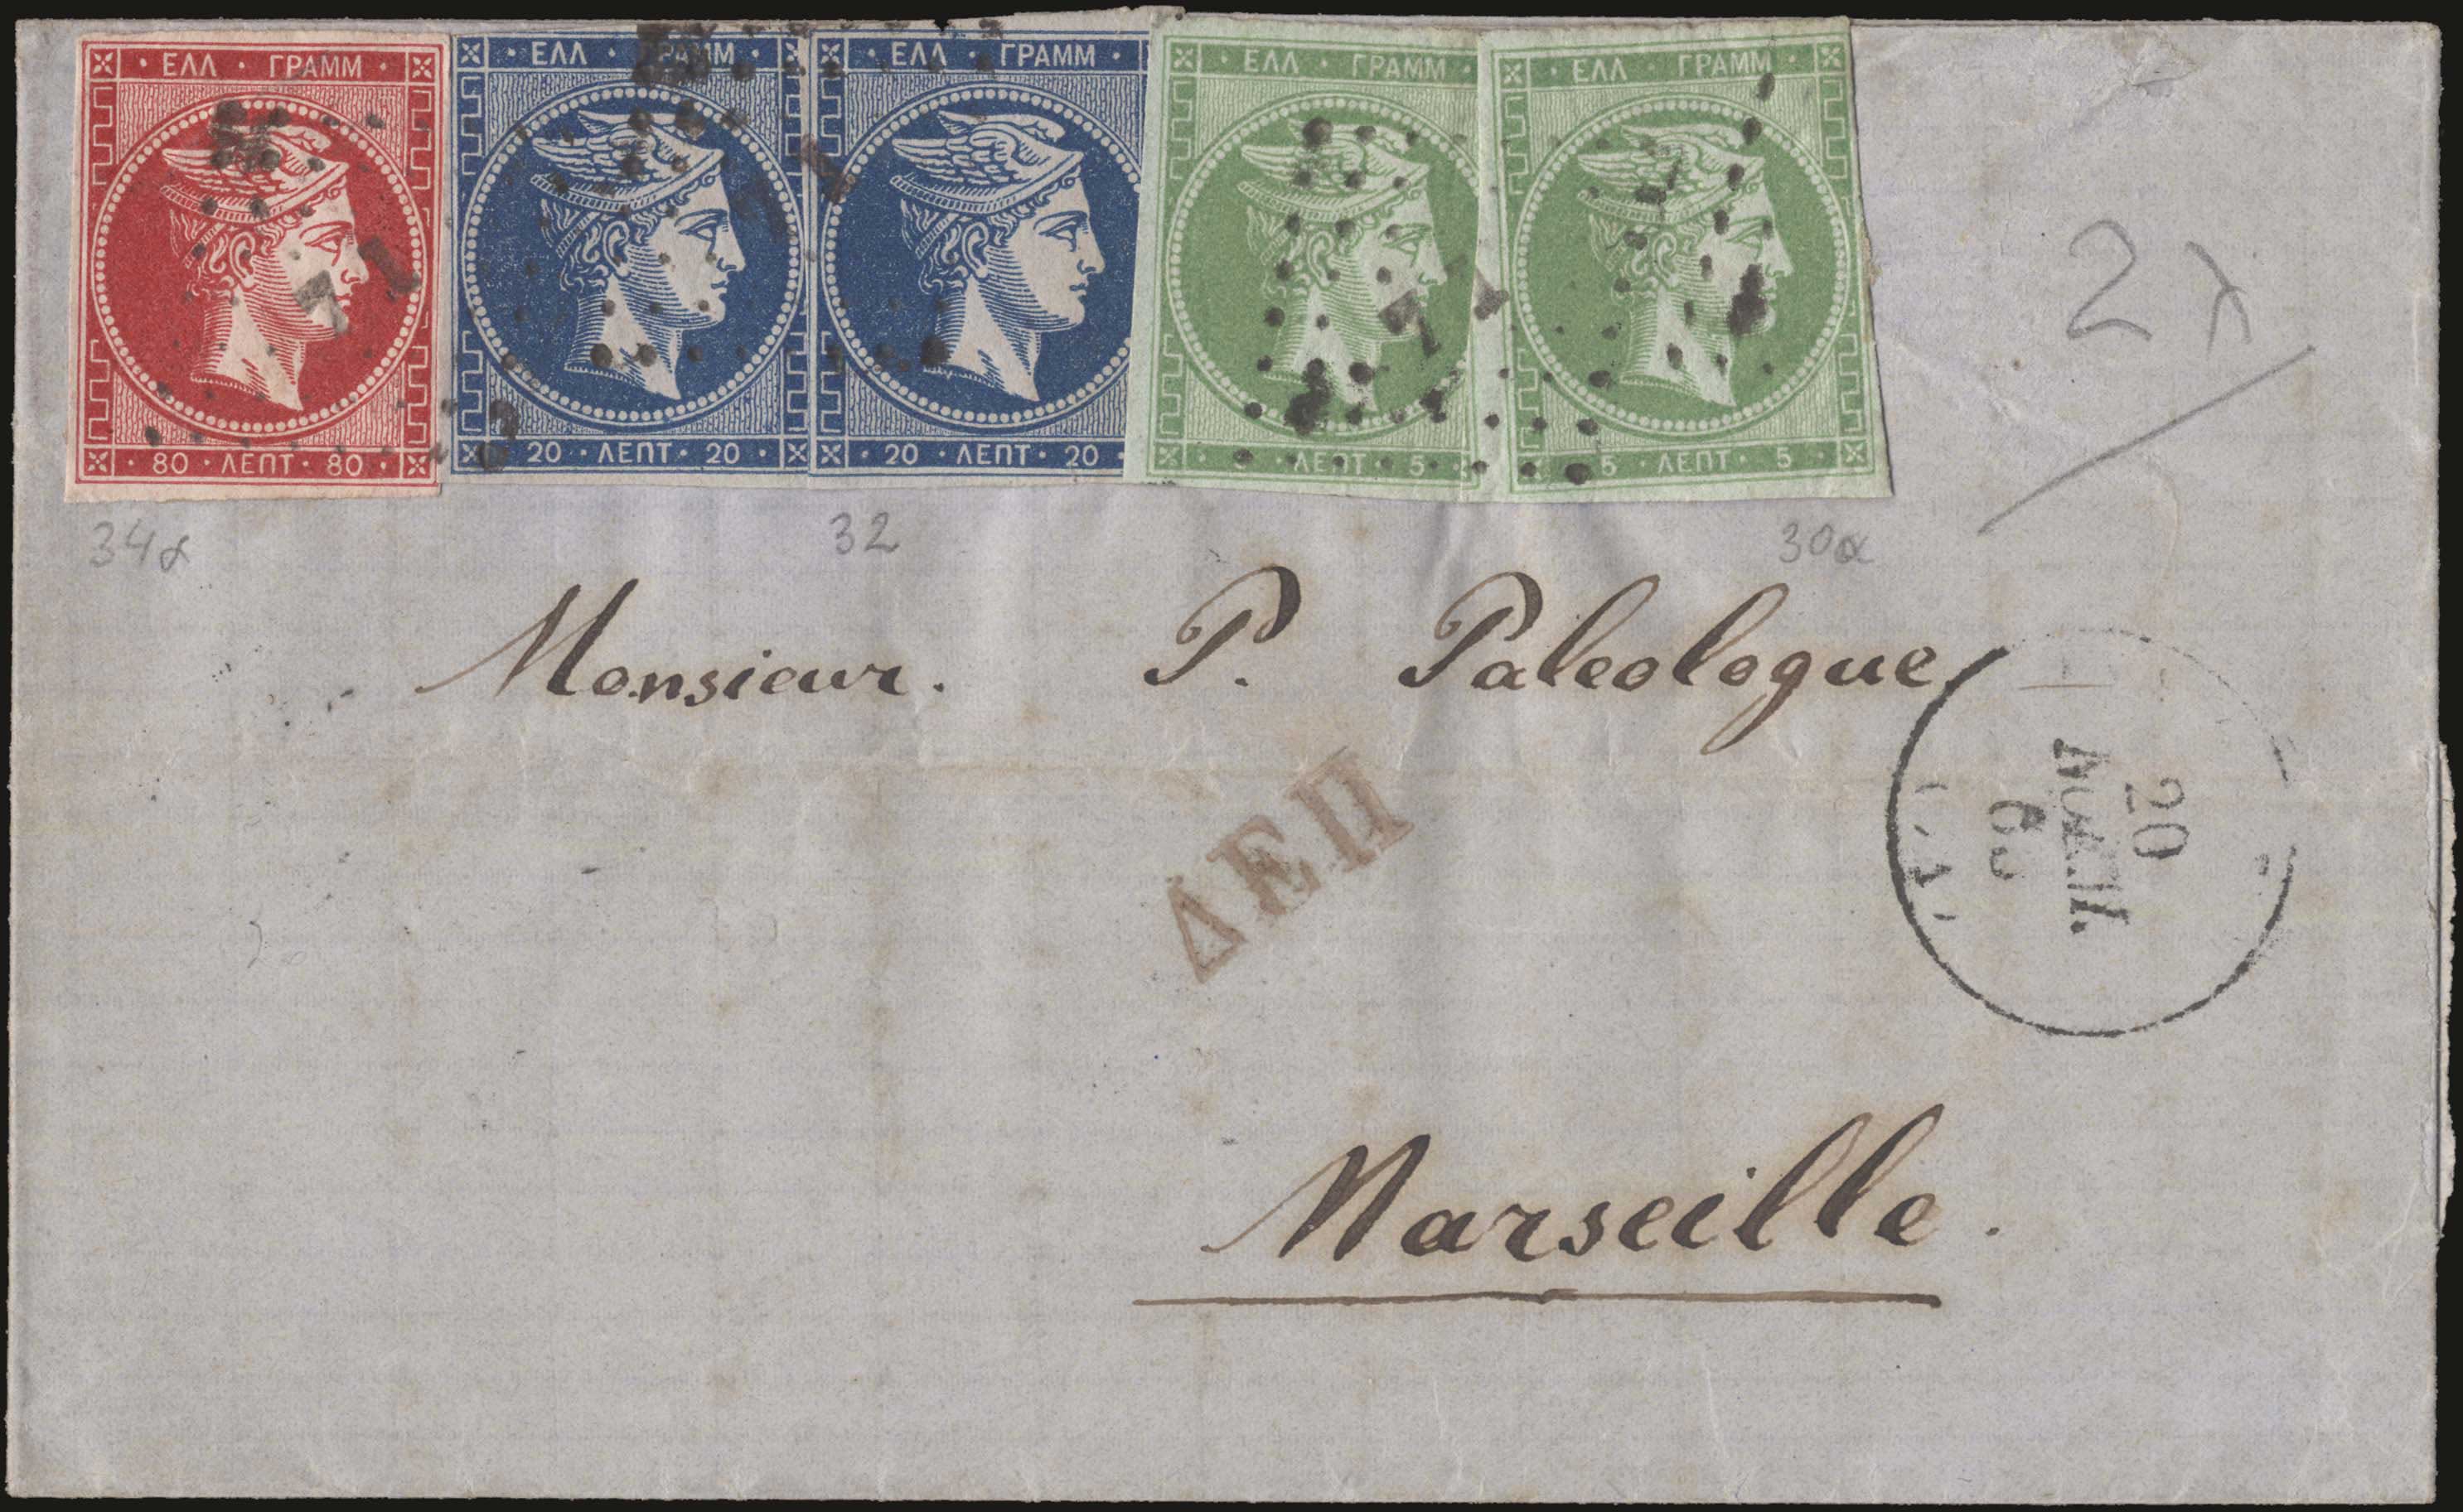 ΕΛΛ · ΓΡΑΜΜ
80 · ΛΕΠΤ · 80
ΕΛΛ · ΓΡΑΜΜ
20 · ΛΕΠΤ · 20
ΕΛΛ · ΓΡΑΜΜ
20 · ΛΕΠΤ · 20
ΕΛΛ · ΓΡΑΜΜ
ΛΕΠΤ · 5
ΕΛΛ · ΓΡΑΜΜ
5 · ΛΕΠΤ · 5
71
71
34α
32
30α
Monsieur. P. Paleologue
ΔΕΠ
20
ΑΠΡΙΛ.
Marseille.